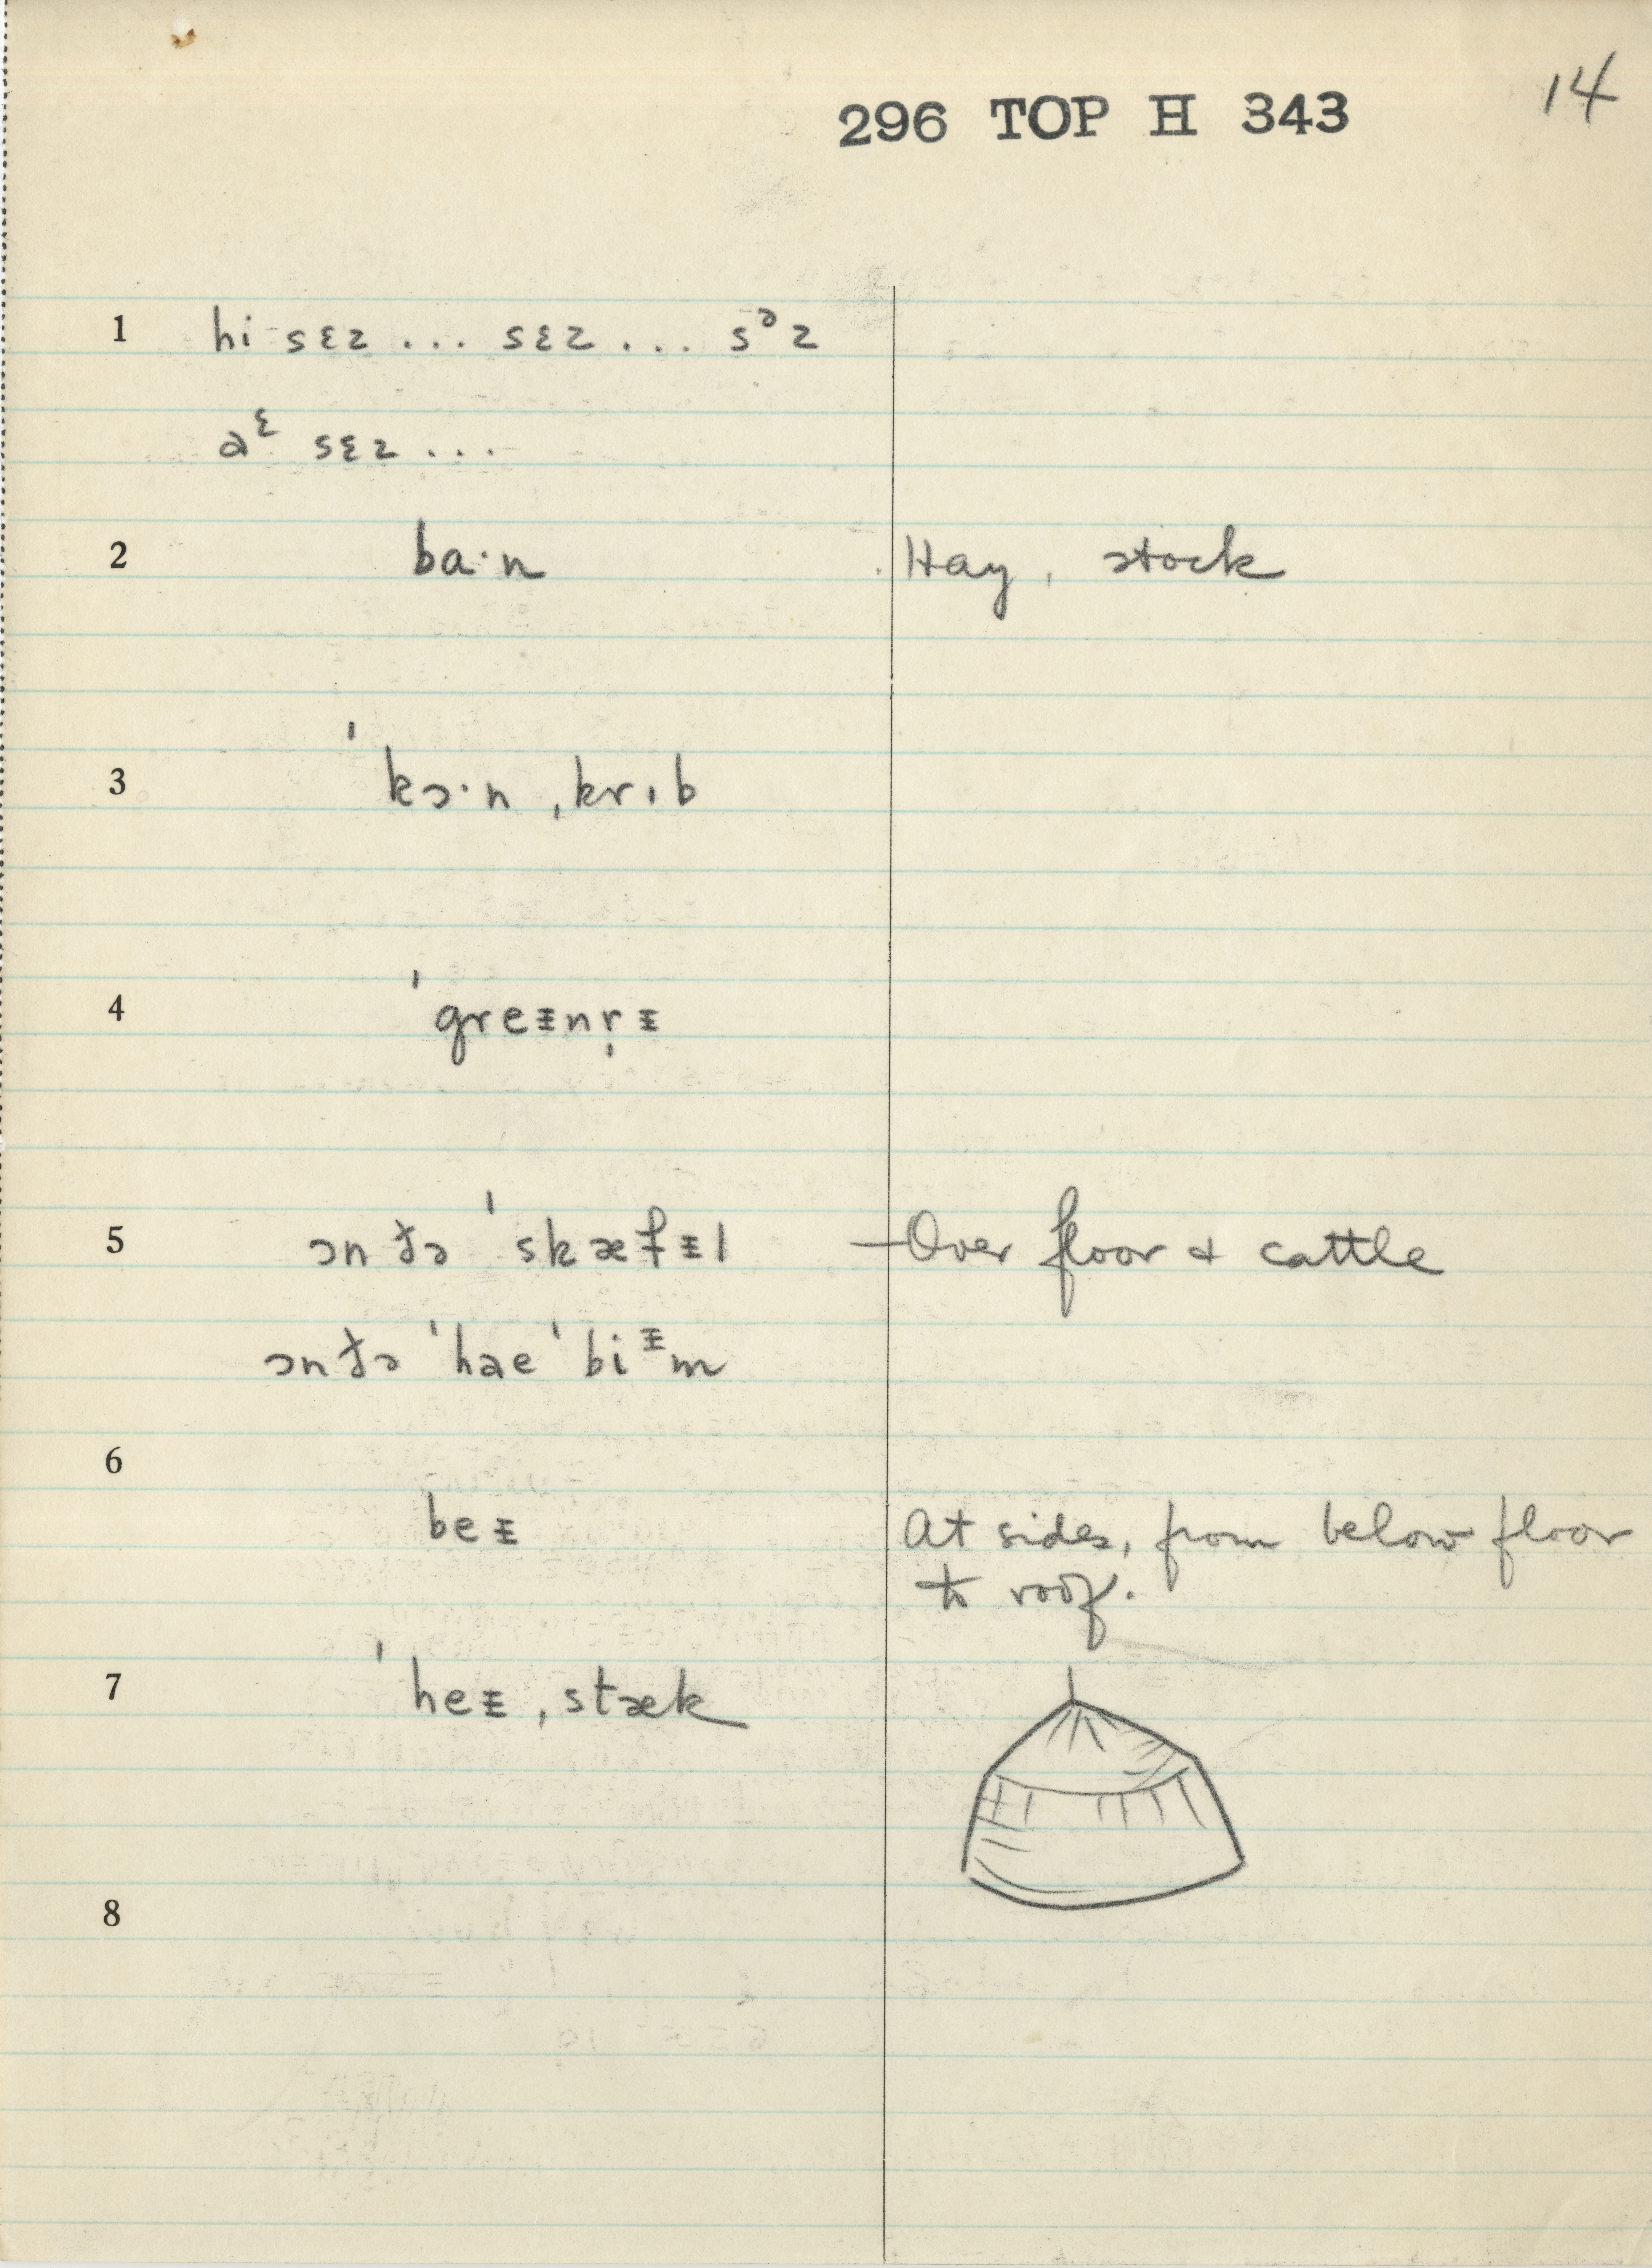 296 TOP H 343 14
1 hi sɛz ... sɛz ... sᵊz
aᵋ sɛz ...
2 ba·n Hay, stock
3 ˈkɔ·n ˌkrɪb
4 ˈgreᵻnr̩ᵻ
5 ɔn ðə ˈskæfᵻl —Over floor & cattle
ɔn ðə ˈhae ˈbiᵻm
6
beᵻ At sides, from below floor
to roof.
7 ˈheᵻ ˌstæk
8